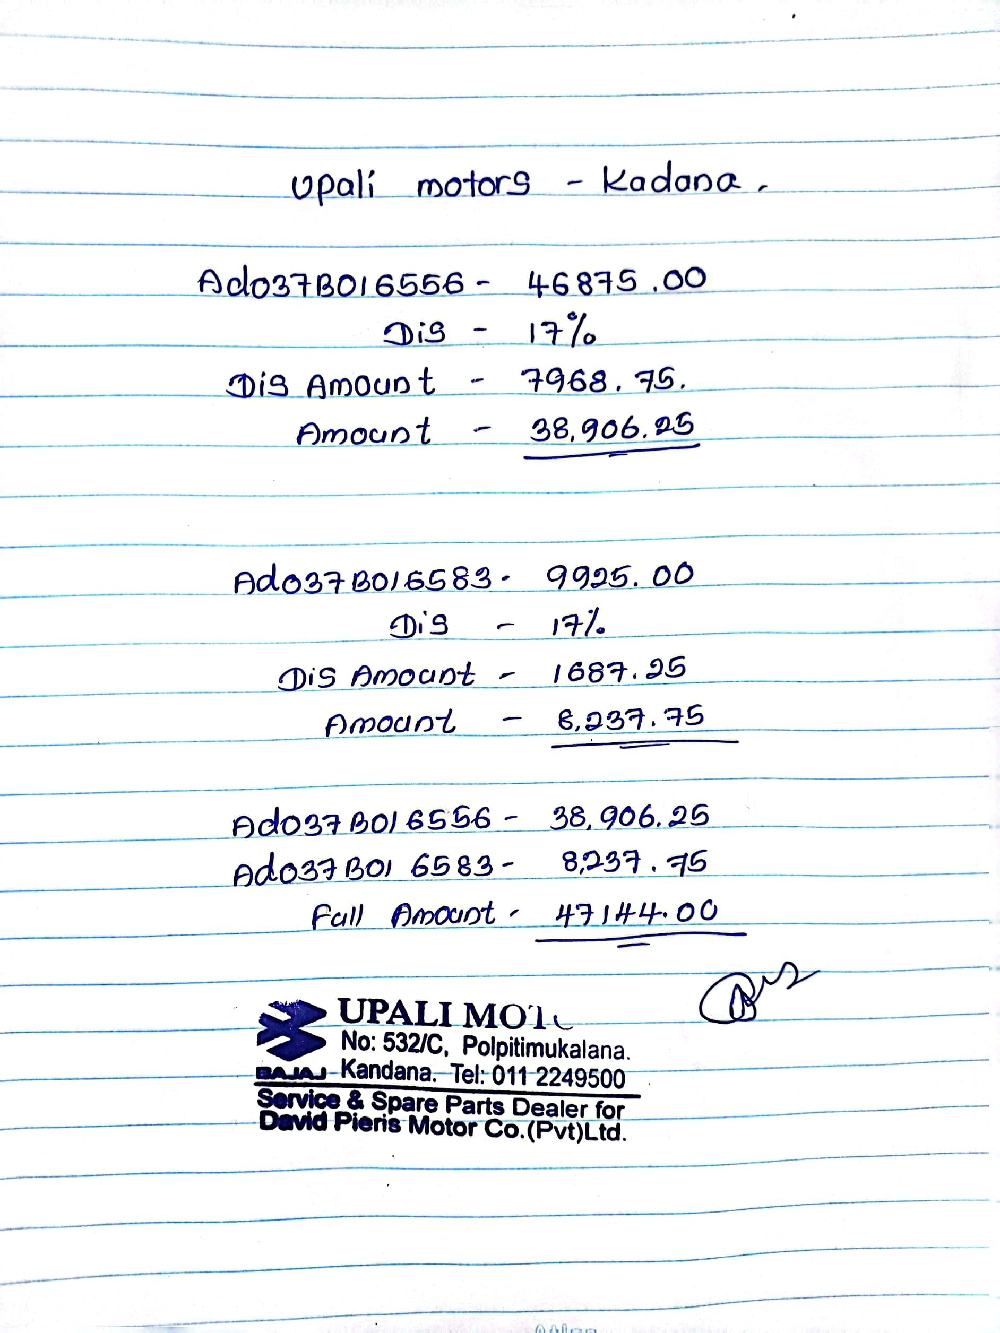 Upali motors - Kadana.
Ado37B016556 - 46875.00
Dis - 17%
Dis Amount - 7968.75.
Amount - 38,906.25
Ado37B016583 - 9925.00
Dis - 17%
Dis Amount - 1687.25
Amount - 8,237.75
Ado37B016556 - 38,906.25
Ado37B016583 - 8,237.75
Full Amount - 47144.00
UPALI MOT
No: 532/C, Polpitimukalana.
BAJAJ Kandana. Tel: 011 2249500
Service & Spare Parts Dealer for
David Pieris Motor Co.(Pvt)Ltd.